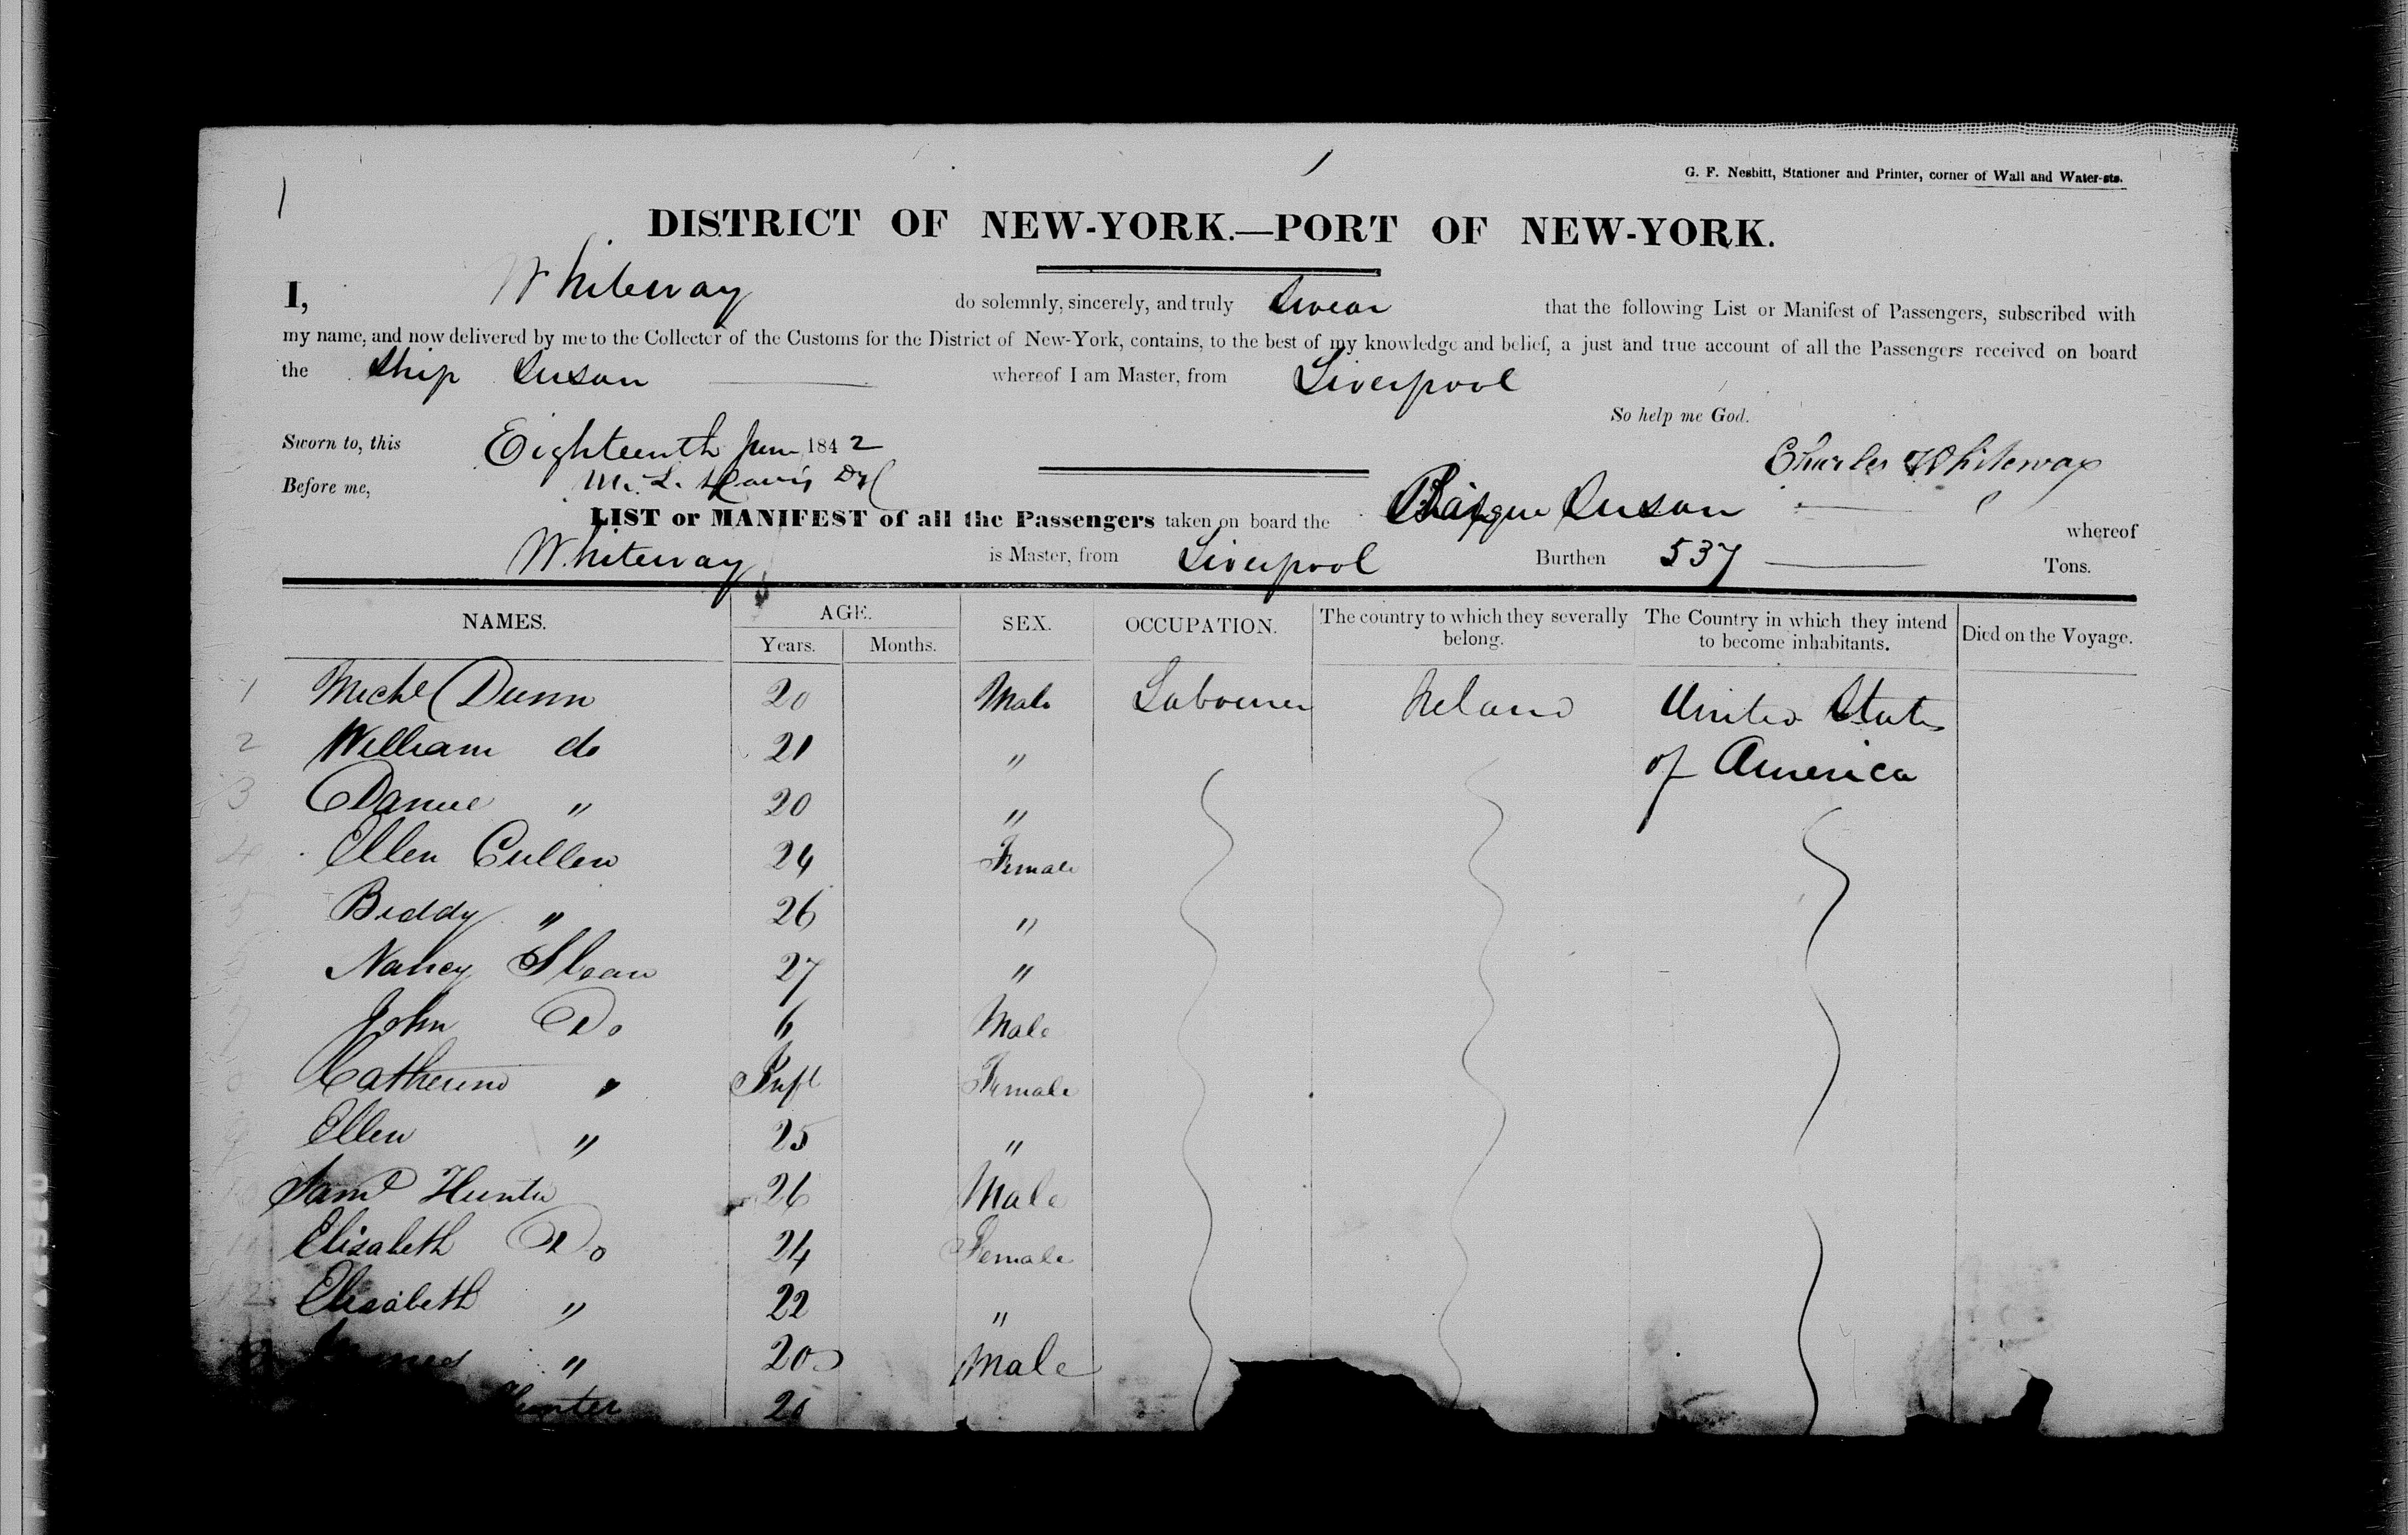 G. F. Nesbitt, Stationer and Printer, corner of Wall and Water-sts.
DISTRICT OF NEW-YORK.—PORT OF NEW-YORK.
I, Whiteway do solemnly, sincerely, and truly Swear that the following List or Manifest of Passengers, subscribed with
my name, and now delivered by me to the Collector of the Customs for the District of New-York, contains, to the best of my knowledge and belief, a just and true account of all the Passengers received on board
the Ship Susan whereof I am Master, from Liverpool
So help me God.
Sworn to, this Eighteenth June 1842
Charles Whiteway
Before me, M. L. Davis
LIST or MANIFEST of all the Passengers taken on board the Barque Susan whereof
Whiteway is Master, from Liverpool Burthen 537 Tons.
NAMES. AGE. SEX. OCCUPATION. The country to which they severally belong. The Country in which they intend to become inhabitants. Died on the Voyage.
Years. Months.
1 Michl Dunn 20 Male Labourer Ireland United States
2 William do 21 " of America
3 Daniel " 20 "
4 Ellen Cullen 24 Female
5 Biddy " 26 "
6 Nancy Sloan 27 "
7 John Do 6 Male
8 Catherine " Inft Female
9 Ellen " 25 "
10 Saml Hunter 26 Male
11 Elizabeth Do 24 Female
12 Elizabeth " 22 "
13 " 20 Male
Hunter